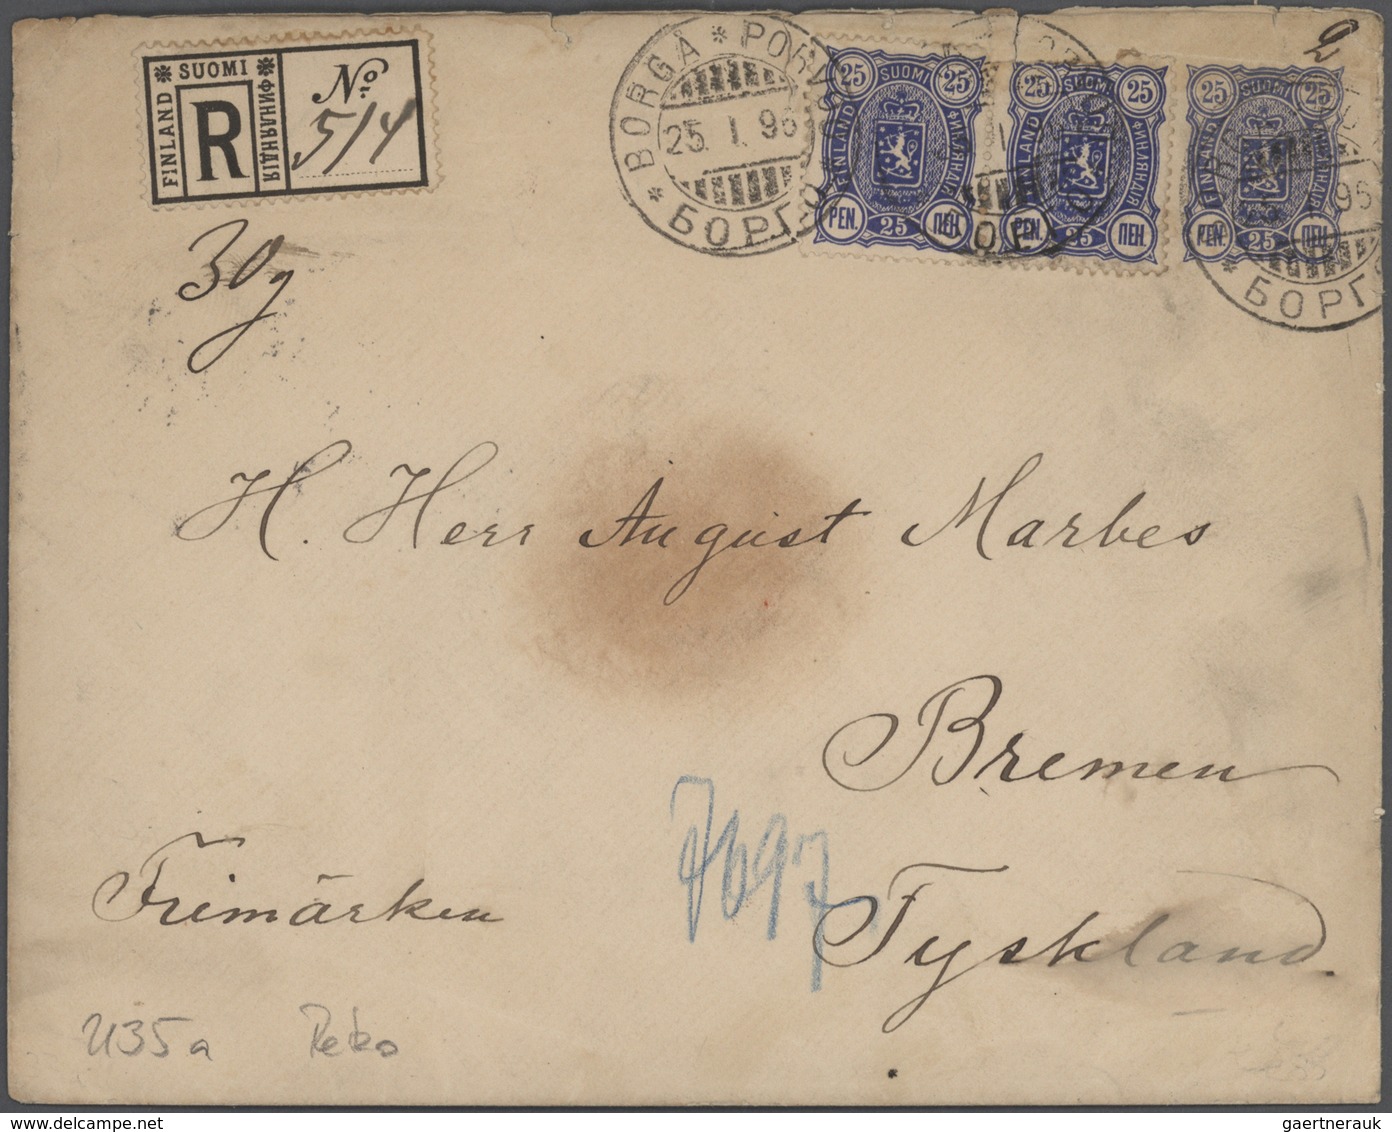 FINLAND
* SUOMI *
ФИНЛЯНДІЯ
R
No
514
30g
* BORGÅ * PORVOO
25. I. 96
БОРГО
25 SUOMI 25
FINLAND
ФИНЛЯНДІЯ
PEN. 25 ПЕН.
25 SUOMI 25
FINLAND
ФИНЛЯНДІЯ
PEN. 25 ПЕН.
25 SUOMI 25
FINLAND
ФИНЛЯНДІЯ
PEN. 25 ПЕН.
2
96
* БОРГО
H. Herr August Marbes
Bremen
Frimärken
Tyskland.
7697
U35a Reko
gaertnerauk